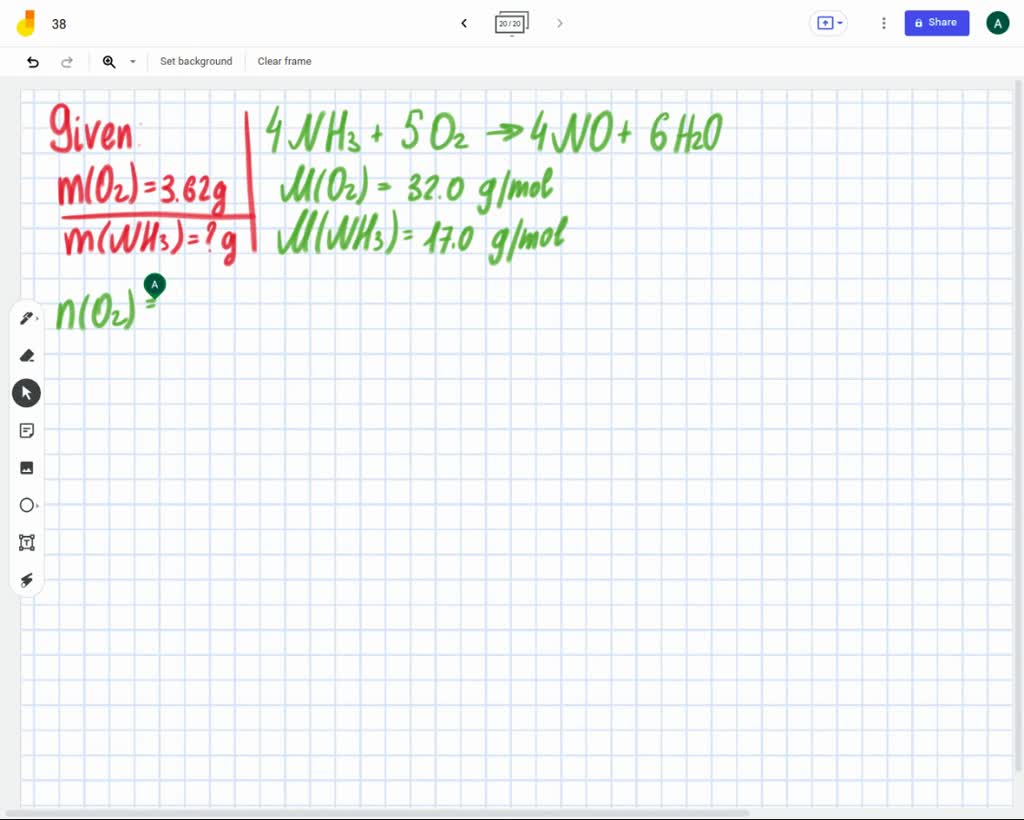 38
20/20
Share
A
Set background
Clear frame
Given:
m(O₂)=3.62g
m(NH₃)=?g
4NH₃ + 5O₂ → 4NO + 6H₂O
M(O₂) = 32.0 g/mol
M(NH₃) = 17.0 g/mol
A
n(O₂) =
T